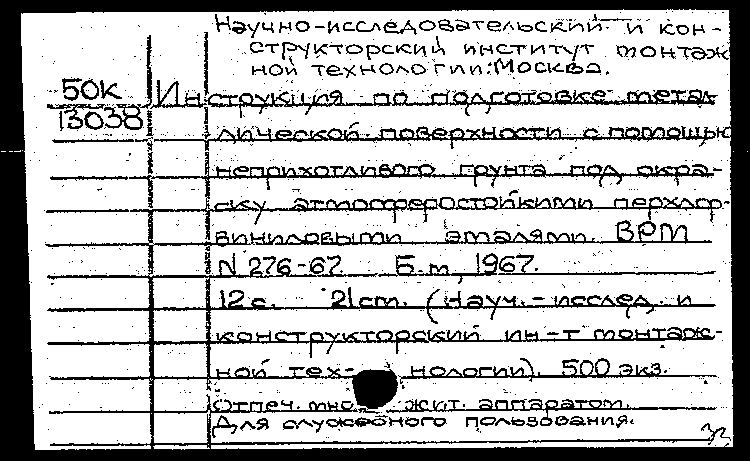 Научно-исследовательский и кон-
структорский институт монтаж
ной технологии. Москва.
50К
13038
Инструкция по подготовке метал
лической поверхности с помощью
неприхотливого грунта под окра-
ску атмосферостойкими перхлор-
виниловыми эмалями. ВРМ
N 276-67. Б.м., 1967.
12 с. 21 cm. (Науч.-исслед. и
конструкторский ин-т монтаж-
ной тех- нологии). 500 экз.
Отпеч. мно жит. аппаратом.
Для служебного пользования.